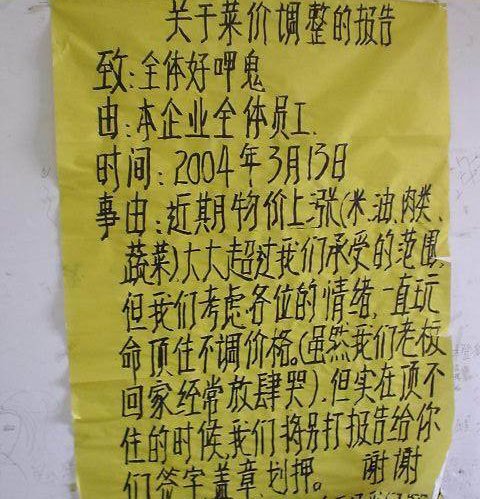 关于菜价调整的报告
致:全体好呷鬼
由:本企业全体员工.
时间:2004年3月13日
事由:近期物价上涨(米、油、肉类、
蔬菜),大大超过我们承受的范围,
但我们考虑各位的情绪,一直玩
命顶住不调价格。(虽然我们老板
回家经常放肆哭),但实在顶不
住的时候,我们将另打报告给你
们签字盖章划押。 谢谢